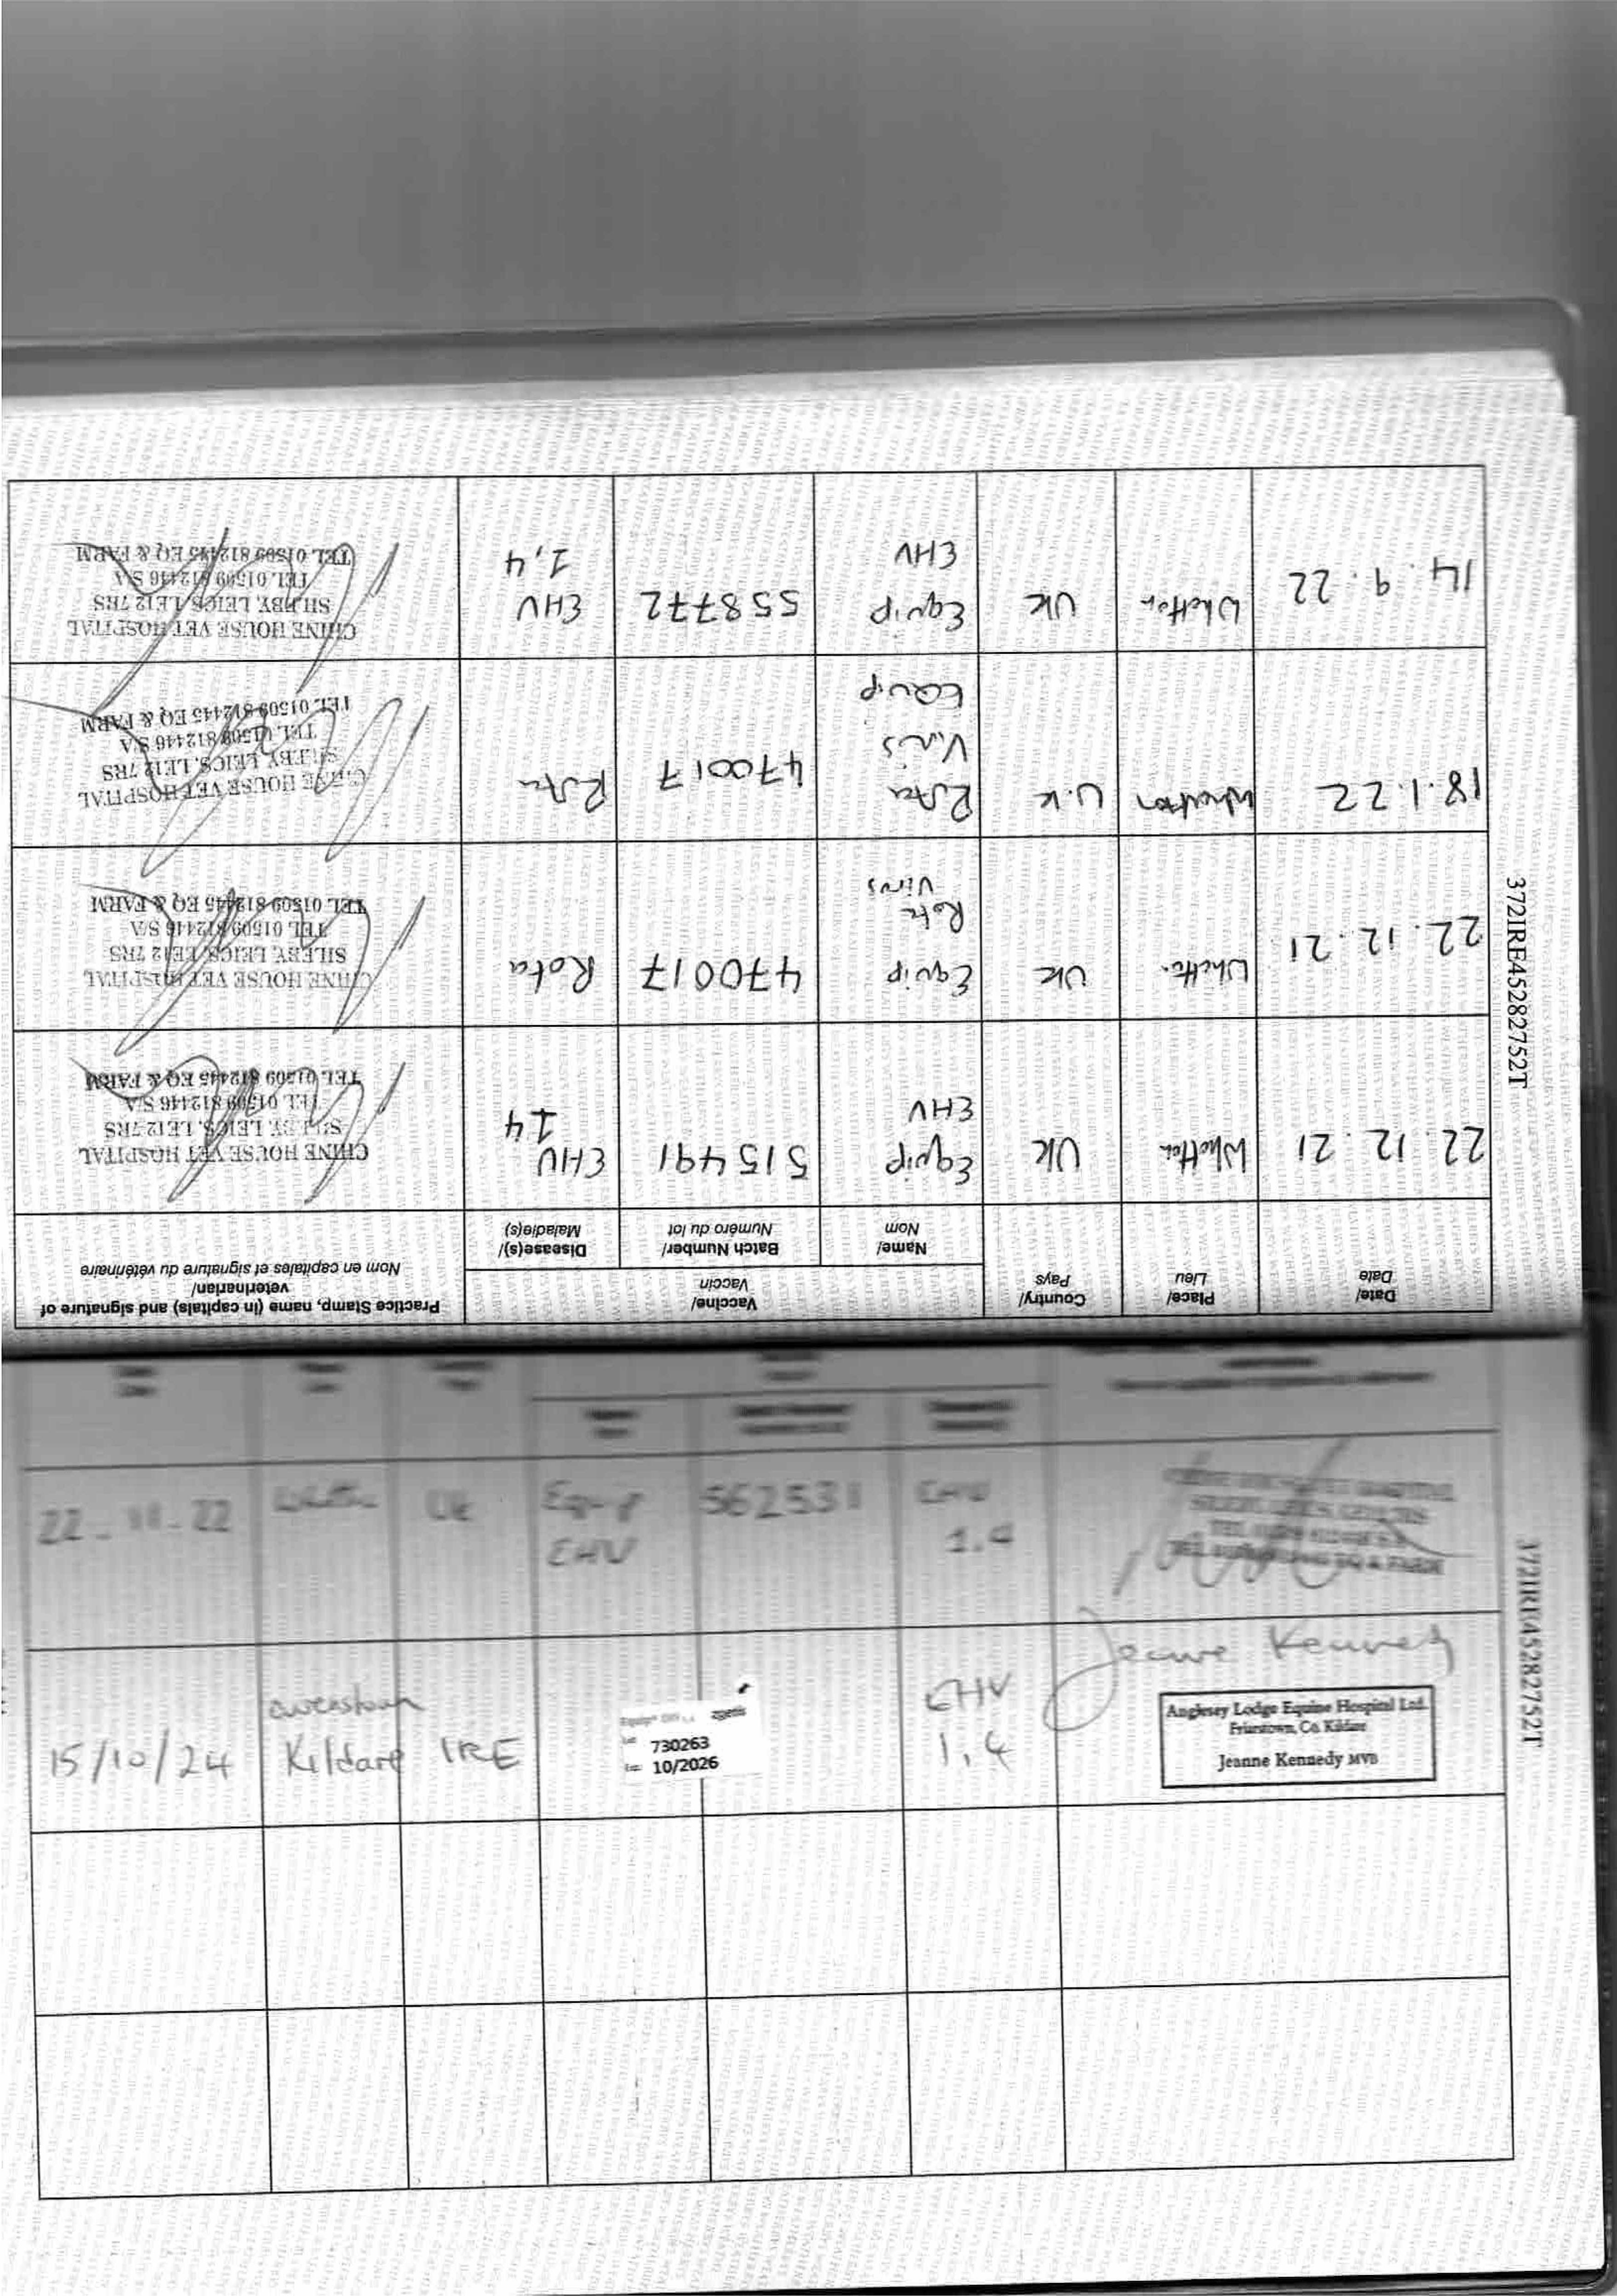 Date/
Date
Place/
Lieu
Country/
Pays
Vaccine/
Vaccin
Name/
Nom
Batch Number/
Numéro du lot
Disease(s)/
Maladie(s)
Practice Stamp, name (in capitals) and signature of
veterinarian/
Nom en capitales et signature du vétérinaire
22. 12. 21
Whatton
UK
Equip
EHV
515491
EHV
1 4
CHINE HOUSE VET HOSPITAL
SILEBY, LEICS, LE12 7RS
TEL 01509 812446 S/A
TEL 01509 812445 EQ & FARM
22. 12. 21.
Whatton
UK
Equip
Rota
Virus
470017
Rota
CHINE HOUSE VET HOSPITAL
SILEBY, LEICS, LE12 7RS
TEL 01509 812446 S/A
TEL 01509 812445 EQ & FARM
18.1.22
Whatton
U.K
Rota
Virus
EQuip
470017
Rota
CHINE HOUSE VET HOSPITAL
SILEBY, LEICS, LE12 7RS
TEL 01509 812446 S/A
TEL 01509 812445 EQ & FARM
14. 9. 22
Whatton
UK
Equip
EHV
558772
EHV
1,4
CHINE HOUSE VET HOSPITAL
SILEBY, LEICS, LE12 7RS
TEL 01509 812446 S/A
TEL 01509 812445 EQ & FARM
372IRE45282752T
22-11-22
UK
Equip
EHV
562531
EHV
1.4
CHINE HOUSE VET HOSPITAL
SILEBY, LEICS, LE12 7RS
TEL 01509 812446 S/A
TEL 01509 812445 EQ & FARM
15/10/24
Owenstown
Kildare
IRE
zoetis
730263
10/2026
EHV
1,4
Jeanne Kennedy
Anglesey Lodge Equine Hospital Ltd.
Friarstown, Co. Kildare
Jeanne Kennedy MVB
372IRE45282752T